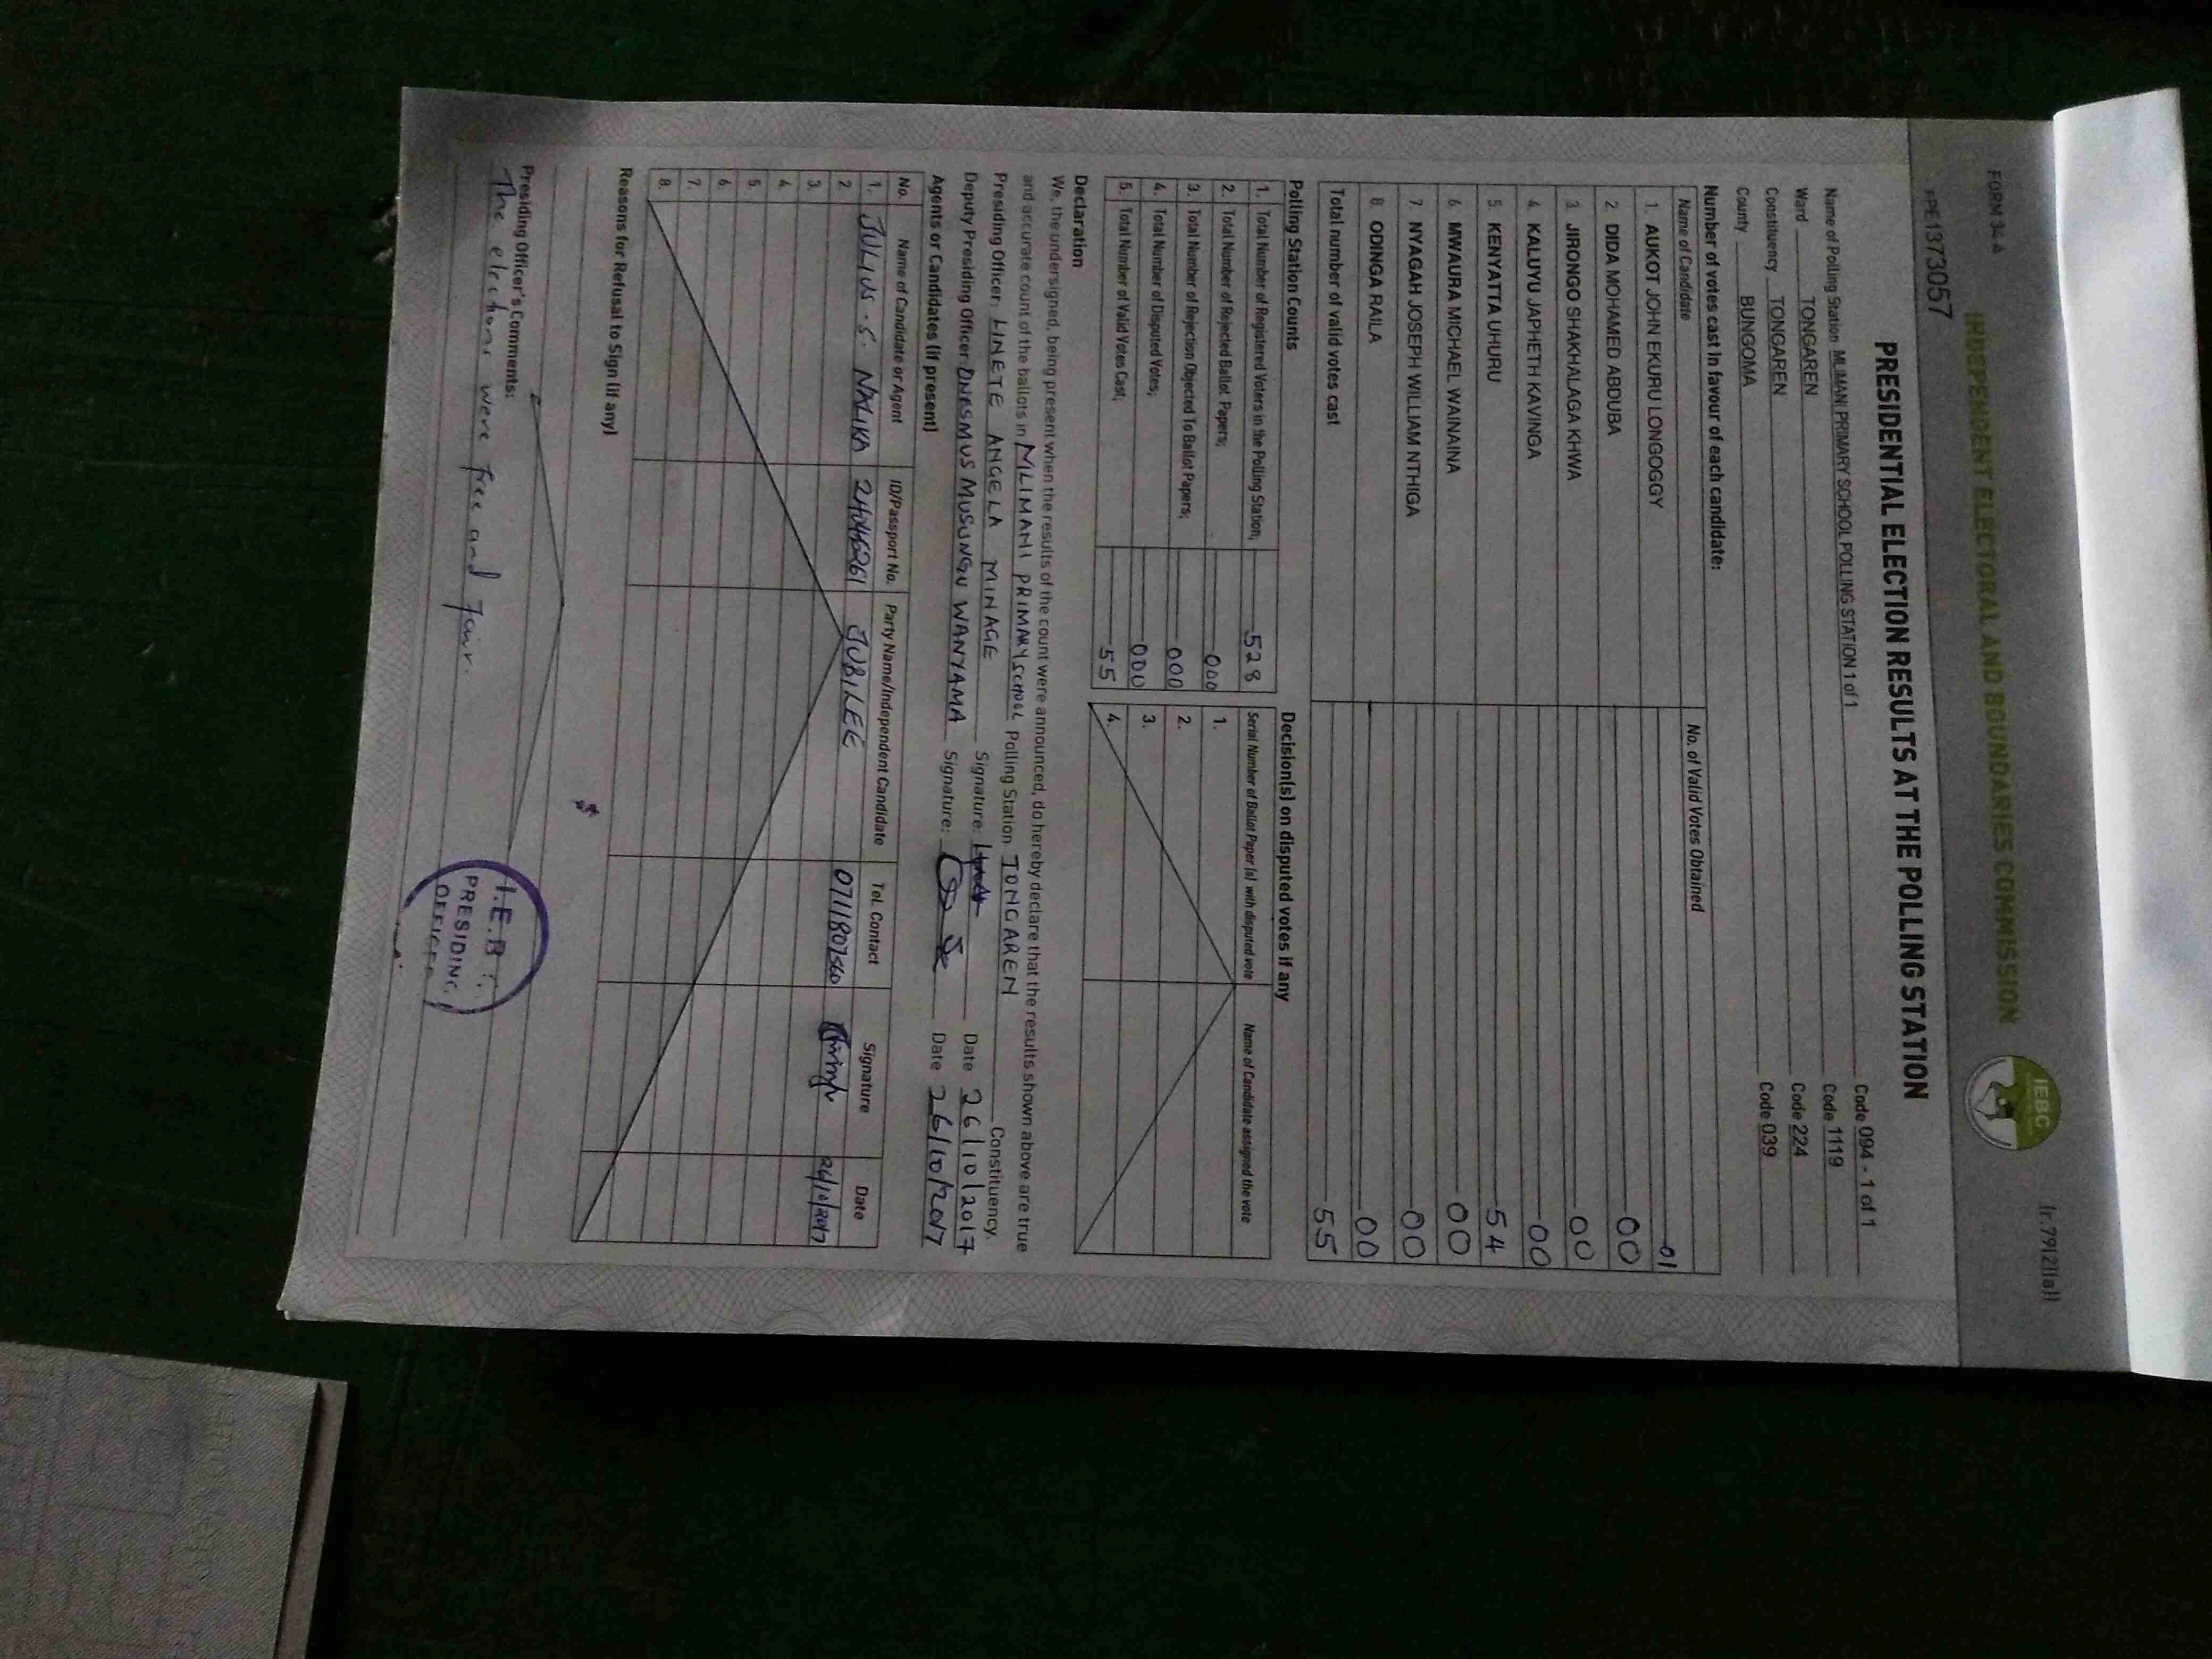 FORM 34 A
(r.79(2)(a))
INDEPENDENT ELECTORAL AND BOUNDARIES COMMISSION
IEBC
PRE1373057
PRESIDENTIAL ELECTION RESULTS AT THE POLLING STATION
Name of Polling Station MLIMANI PRIMARY SCHOOL POLLING STATION 1 of 1 Code 094 - 1 of 1
Ward TONGAREN Code 1119
Constituency TONGAREN Code 224
County BUNGOMA Code 039
Number of votes cast in favour of each candidate:
Name of Candidate No. of Valid Votes Obtained
1. AUKOT JOHN EKURU LONGOGGY 01
2. DIDA MOHAMED ABDUBA 00
3. JIRONGO SHAKHALAGA KHWA 00
4. KALUYU JAPHETH KAVINGA 00
5. KENYATTA UHURU 54
6. MWAURA MICHAEL WAINAINA 00
7. NYAGAH JOSEPH WILLIAM NTHIGA 00
8. ODINGA RAILA 00
Total number of valid votes cast 55
Polling Station Counts
1. Total Number of Registered Voters in the Polling Station; 528
2. Total Number of Rejected Ballot Papers; 000
3. Total Number of Rejection Objected To Ballot Papers; 000
4. Total Number of Disputed Votes; 000
5. Total Number of Valid Votes Cast; 55
Decision(s) on disputed votes if any
Serial Number of Ballot Paper (s) with disputed vote Name of Candidate assigned the vote
1.
2.
3.
4.
Declaration
We, the undersigned, being present when the results of the count were announced, do hereby declare that the results shown above are true
and accurate count of the ballots in MLIMANI PRIMARY SCHOOL Polling Station TONGAREN Constituency.
Presiding Officer: LINETE ANGELA MINAGE Signature: Date 26/10/2017
Deputy Presiding Officer: ONESMUS MUSUNGU WANYAMA Signature: Date 26/10/2017
Agents or Candidates (if present)
No. Name of Candidate or Agent ID/Passport No. Party Name/Independent Candidate Tel. Contact Signature Date
1. JULIUS . S. NALIKA 24046261 JUBILEE 0711807560 26/10/2017
2.
3.
4.
5.
6.
7.
8.
Reasons for Refusal to Sign (if any)
Presiding Officer's Comments:
The elections were free and fair.
I.E.B.C.
PRESIDING
OFFICER